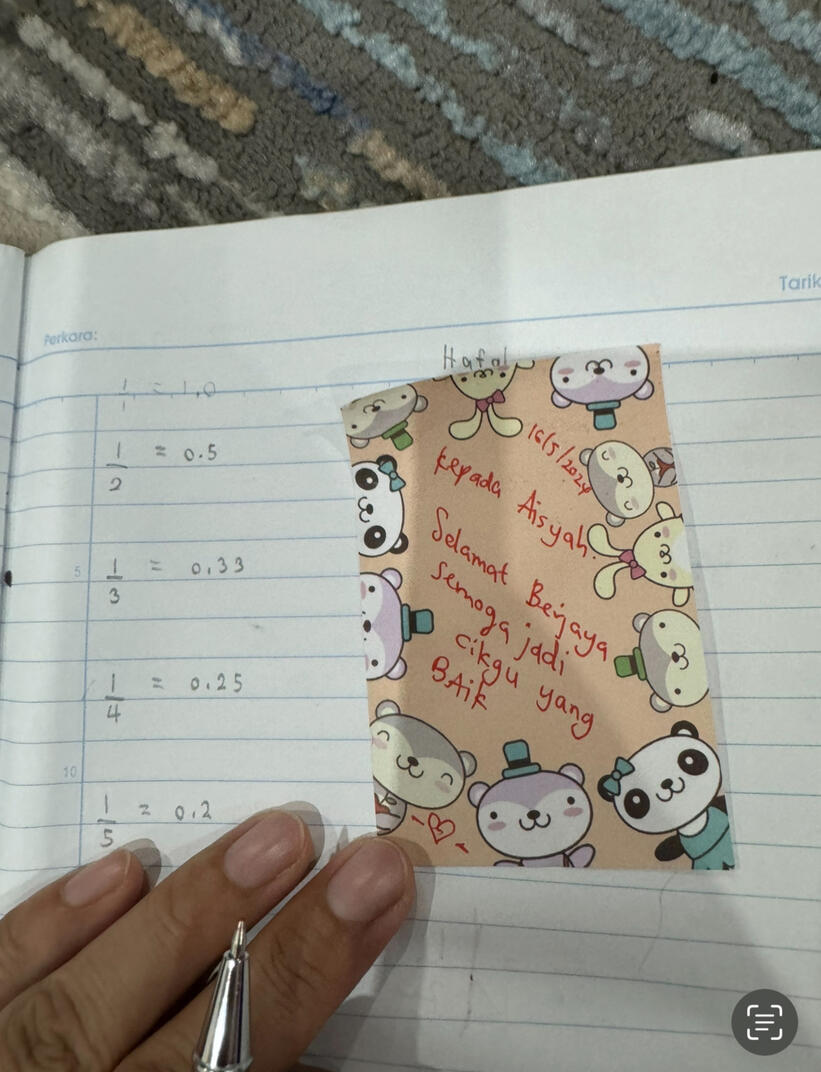 Tarik
Perkara:
Hafal
1/1 = 1.0
1/2 = 0.5
5
1/3 = 0.33
1/4 = 0.25
10
1/5 = 0.2
16/5/2024
kepada Aisyah
Selamat Berjaya
semoga jadi
cikgu yang
BAik